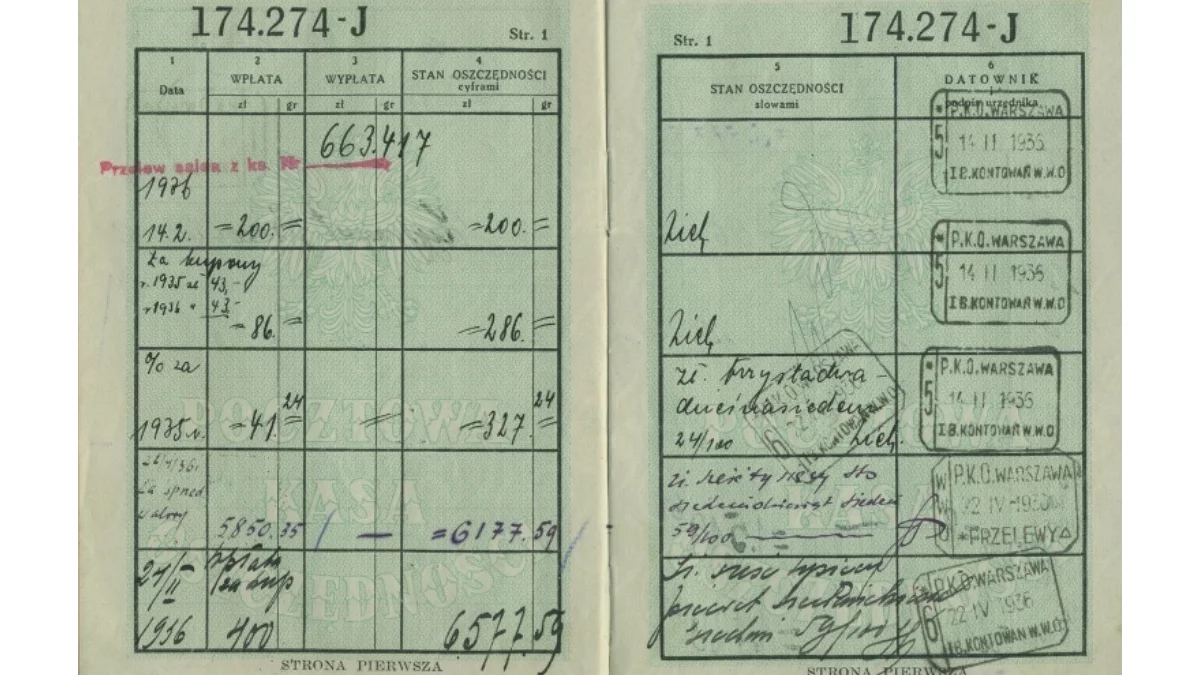 174.274-J
Str. 1
1 2 3 4
Data WPŁATA WYPŁATA STAN OSZCZĘDNOŚCI
cyframi
zł gr zł gr zł gr
663.417
Przelew z ks. Nr
1936
14.2. =200.= =200.=
Za kupony
r. 1935 zł 43,-
r 1936 " 43,-
=86.= =286.=
% za
1935 r. =41.24 = =327.24
za sprzed
5850.35 — =6177.59
24/II
1936 400 6577.59
POCZTOWA
KASA
OSZCZĘDNOŚCI
STRONA PIERWSZA
174.274-J
Str. 1
5 6
STAN OSZCZĘDNOŚCI
słowami
DATOWNIK
i
podpis urzędnika
* P.K.O. WARSZAWA
5 14 II 1936
I B.KONTOWAŃ W.W.O
* P.K.O. WARSZAWA
5 14 II 1936
I B.KONTOWAŃ W.W.O
zł. trzystadwa-
dzieściasiedem
24/100
* P.K.O. WARSZAWA
5 14 II 1936
I B.KONTOWAŃ W.W.O
P.K.O. WARSZAWA
6
zł. sześć tysięcy sto
siedemdziesiąt siedem
59/100
P.K.O. WARSZAWA
22 IV 1936
*PRZELEWY
zł. sześć tysięcy
59/100
P.K.O. WARSZAWA
6 22 IV 1936
I B.KONTOWAŃ W.W.O
STRONA PIERWSZA